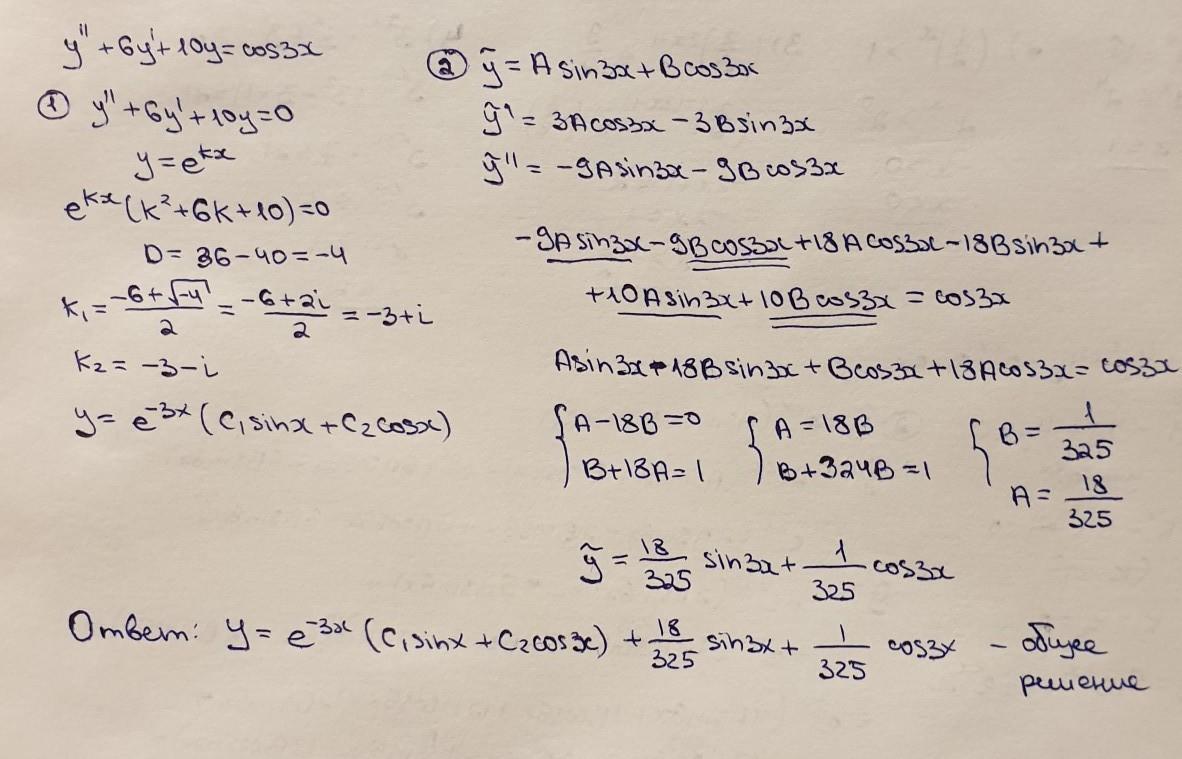 y'' + 6y' + 10y = cos3x
① y'' + 6y' + 10y = 0
y = e^{kx}
e^{kx}(k² + 6k + 10) = 0
D = 36 - 40 = -4
k₁ = \frac{-6 + \sqrt{-4}}{2} = \frac{-6 + 2i}{2} = -3 + i
k₂ = -3 - i
y = e^{-3x} (C₁sinx + C₂cosx)
② ỹ = A sin3x + B cos3x
ỹ' = 3A cos3x - 3B sin3x
ỹ'' = -9A sin3x - 9B cos3x
-9A sin3x - 9B cos3x + 18A cos3x - 18B sin3x +
+ 10A sin3x + 10B cos3x = cos3x
A sin3x - 18B sin3x + B cos3x + 18A cos3x = cos3x
{ A - 18B = 0 { A = 18B { B = \frac{1}{325}
B + 18A = 1 B + 324B = 1 A = \frac{18}{325}
ỹ = \frac{18}{325} sin3x + \frac{1}{325} cos3x
Ответ: y = e^{-3x} (C₁sinx + C₂cos3x) + \frac{18}{325} sin3x + \frac{1}{325} cos3x - общее
решение